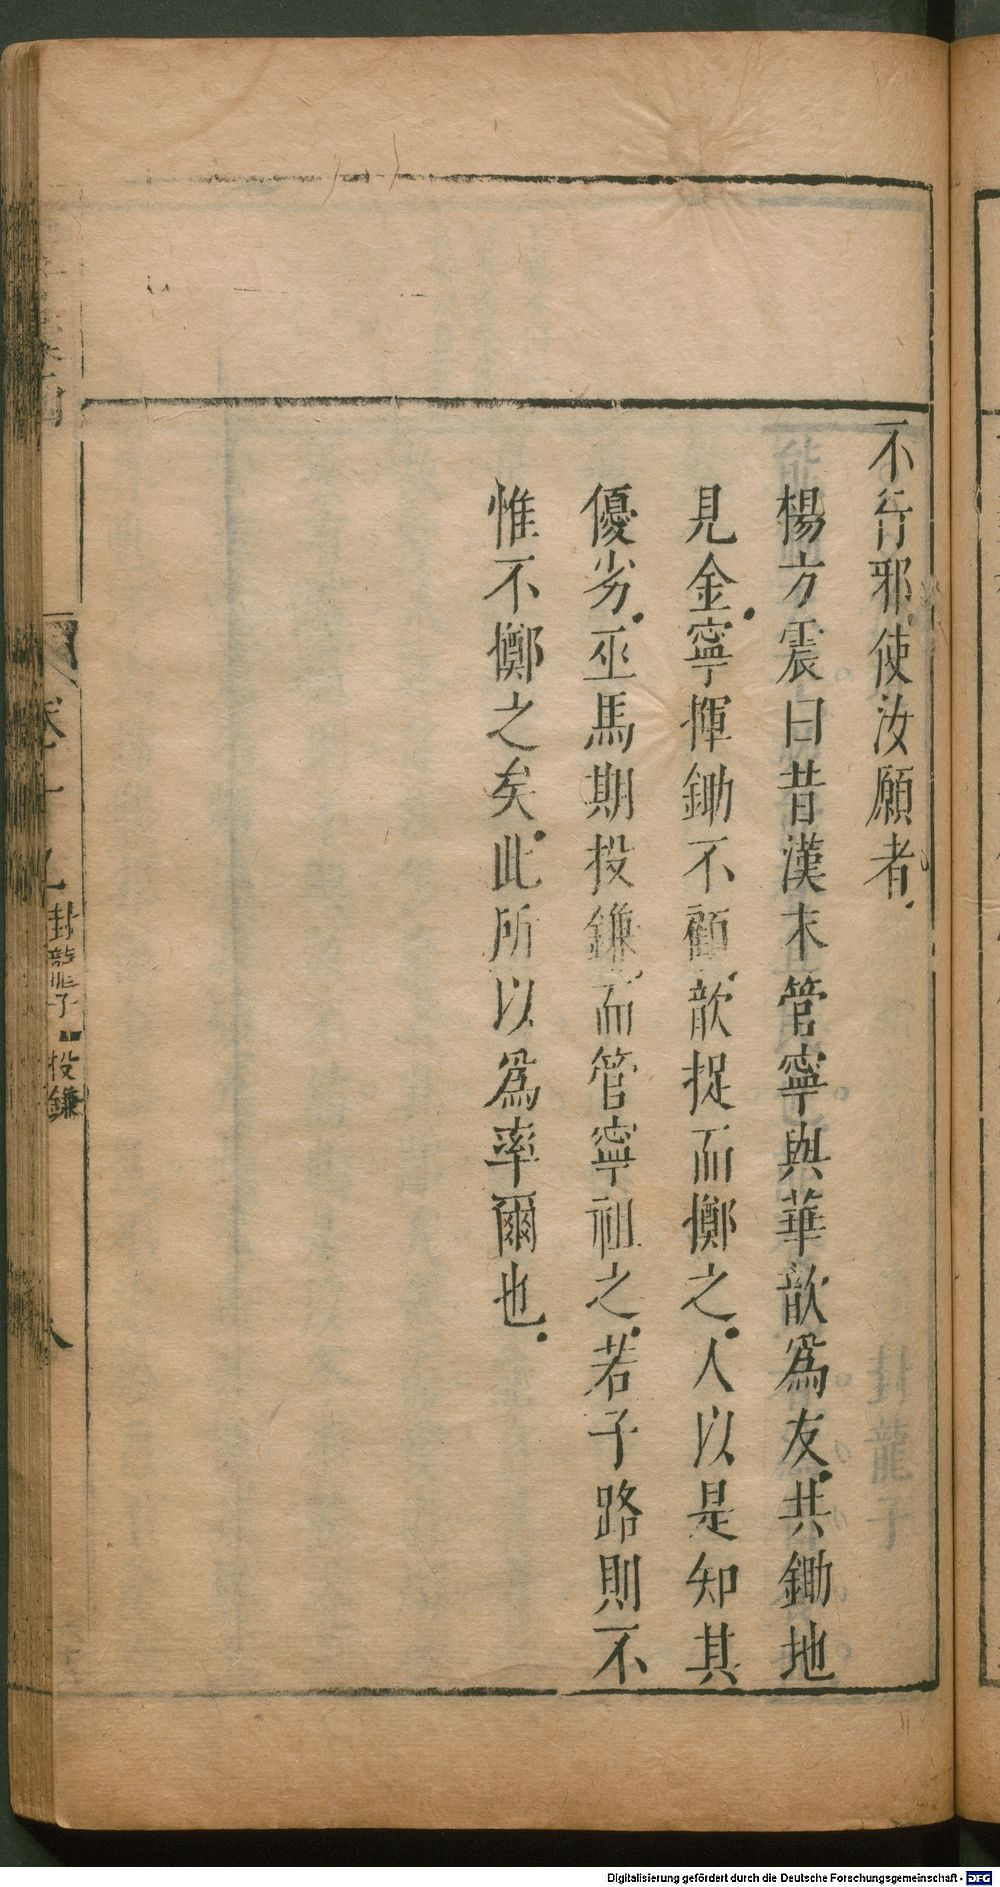 不行邪使汝願者．　封龍子
楊方震曰昔漢末管寧與華歆爲友．共鋤地
見金．寧揮鋤不顧．歆捉而擲之．人以是知其
優劣．巫馬期投鎌．而管寧祖之．若子路則不
惟不擲之矣．此所以爲率爾也．
卷十九
封龍子
投鎌
八
Digitalisierung gefördert durch die Deutsche Forschungsgemeinschaft - DFG